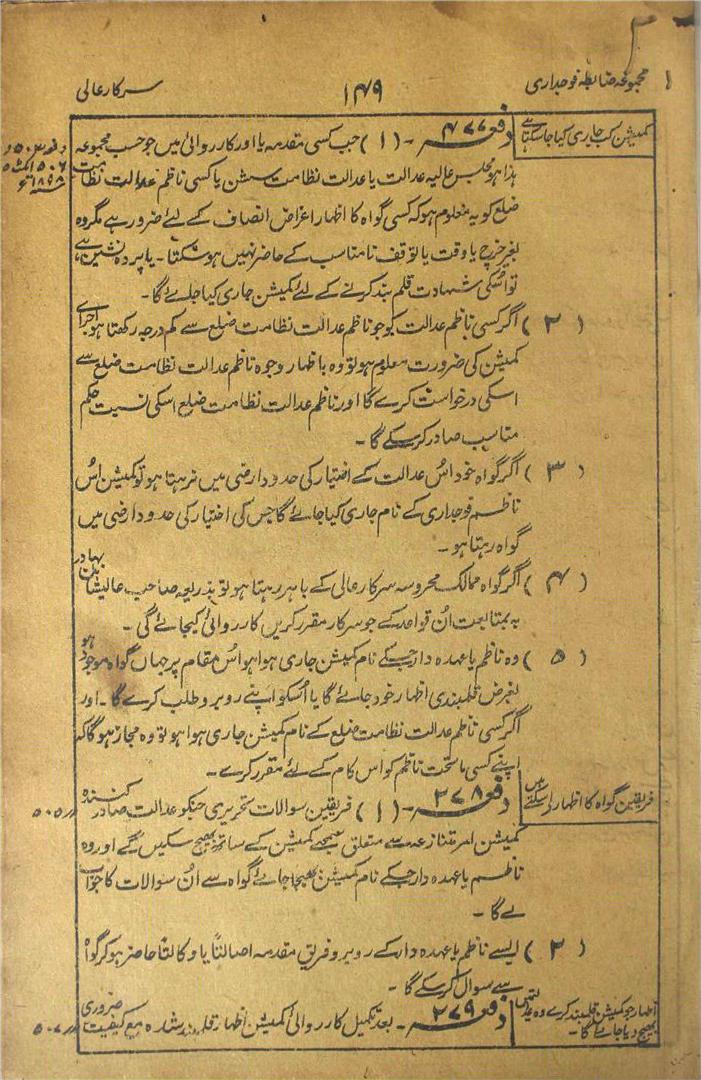 مجموعہ ضابطہ فوجداری ۱۴۹ سرکار عالی
کمیشن کب جاری کیا جا سکتا ہے
دفعہ ۴۷۷ - (۱) جب کسی مقدمہ یا اور کارروائی میں جو حسب مجموعہ
ہذا ہو مجلس عالیہ عدالت یا عدالت نظامت سشن یا کسی ناظم عدالت نظامت
ضلع کو یہ معلوم ہو کہ کسی گواہ کا اظہار اغراض انصاف کے لئے ضرور ہے مگر وہ
بغیر خرچ یا وقت یا توقف نامناسب کے حاضر نہیں ہو سکتا - یا پردہ نشین ہے
تو اُسکی شہادت قلم بند کرنے کے لئے کمیشن جاری کیا جائے گا -
(۲) اگر کسی ناظم عدالت کو جو ناظم عدالت نظامت ضلع سے کم درجہ رکھتا ہو اجرائے
کمیشن کی ضرورت معلوم ہو تو وہ باظہار وجوہ ناظم عدالت نظامت ضلع سے
اسکی درخواست کرے گا اور ناظم عدالت نظامت ضلع اسکی نسبت حکم
مناسب صادر کرسکے گا -
(۳) اگر گواہ خود اُس عدالت کے اختیار کی حدود ارضی میں نہ رہتا ہو تو کمیشن اُس
ناظم فوجداری کے نام جاری کیا جائے گا جس کی اختیار کی حدود ارضی میں
گواہ رہتا ہو -
(۴) اگر گواہ ممالک محروسہ سرکار عالی کے باہر رہتا ہو تو بذریعہ صاحب عالیشان بہادر
بہ متابعت اُن قواعد کے جو سرکار مقرر کریں کارروائی کیجائے گی -
(۵) وہ ناظم یا عہدہ دار جسکے نام کمیشن جاری ہوا ہو اُس مقام پر جہاں گواہ موجود ہو
بغرض قلمبندی اظہار خود جائے گا یا اُسکو اپنے روبرو طلب کرے گا - اور
اگر کسی ناظم عدالت نظامت ضلع کے نام کمیشن جاری ہوا ہو تو وہ مجاز ہوگا کہ
اپنے کسی ماتحت ناظم کو اس کام کے لئے مقرر کرے -
فریقین گواہ کا اظہار لے سکتے ہیں
دفعہ ۲۷۸ - (۱) فریقین سوالات تحریری جنکو عدالت صادر کنندہ
۵۰۵
کمیشن امر متنازعہ سے متعلق سمجھے کمیشن کے ساتھ بھیج سکیں گے اور وہ
ناظم یا عہدہ دار جسکے نام کمیشن بھیجا جائے گواہ سے اُن سوالات کا جواب
لے گا -
(۲) ایسے ناظم یا عہدہ دار کے روبرو فریق مقدمہ اصالتًا یا وکالتًا حاضر ہو کر گواہ
سے سوال کرسکے گا -
دفعہ ۲۷۹ - بعد تکمیل کارروائی کمیشن اظہار قلمبند شدہ مع کیفیت ضروری
۵۰۷